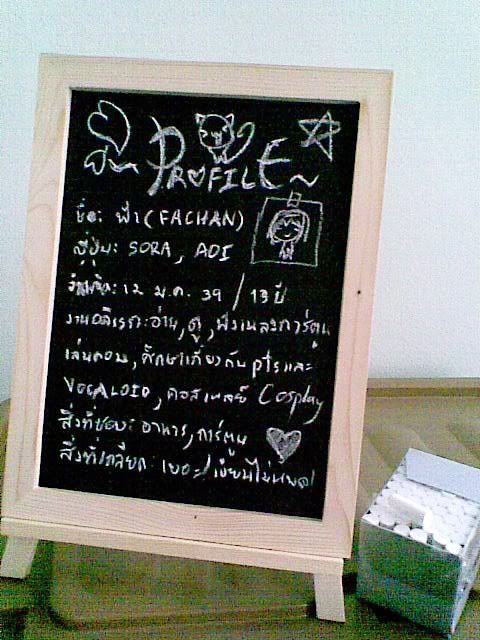 PROFILE ~
ชื่อ: ฟ้า (FACHAN)
ญี่ปุ่น: SORA, AOI
วันเกิด: 12 ม.ค. 39 / 13 ปี
งานอดิเรก: อ่าน, ดู, ฟังเพลงการ์ตูน
เล่นคอม, ศึกษาเกี่ยวกับ และ
VOCALOID, คอสเพลย์ Cosplay
สิ่งที่ชอบ: อาหาร, การ์ตูน
สิ่งที่เกลียด: เยอะ/เขียนไม่หมด